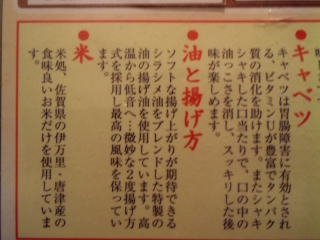 ●キャベツ
キャベツは胃腸障害に有効とされ
る、ビタミンUが豊富でタンパク
質の消化を助けます。またシャキ
シャキした口当たりで、口の中の
油っこさを消し、スッキリした後
味が楽しめます。
●油と揚げ方
ソフトな揚げ上がりが期待できる
シラシメ油をブレンドした特製の
油の揚げ油を使用しています。高
温から低音へ…微妙な2度揚げ方
式を採用し最高の風味を保ってい
ます。
●米
米処、佐賀県の伊万里・唐津産の
食味良いお米だけを使用していま
す。